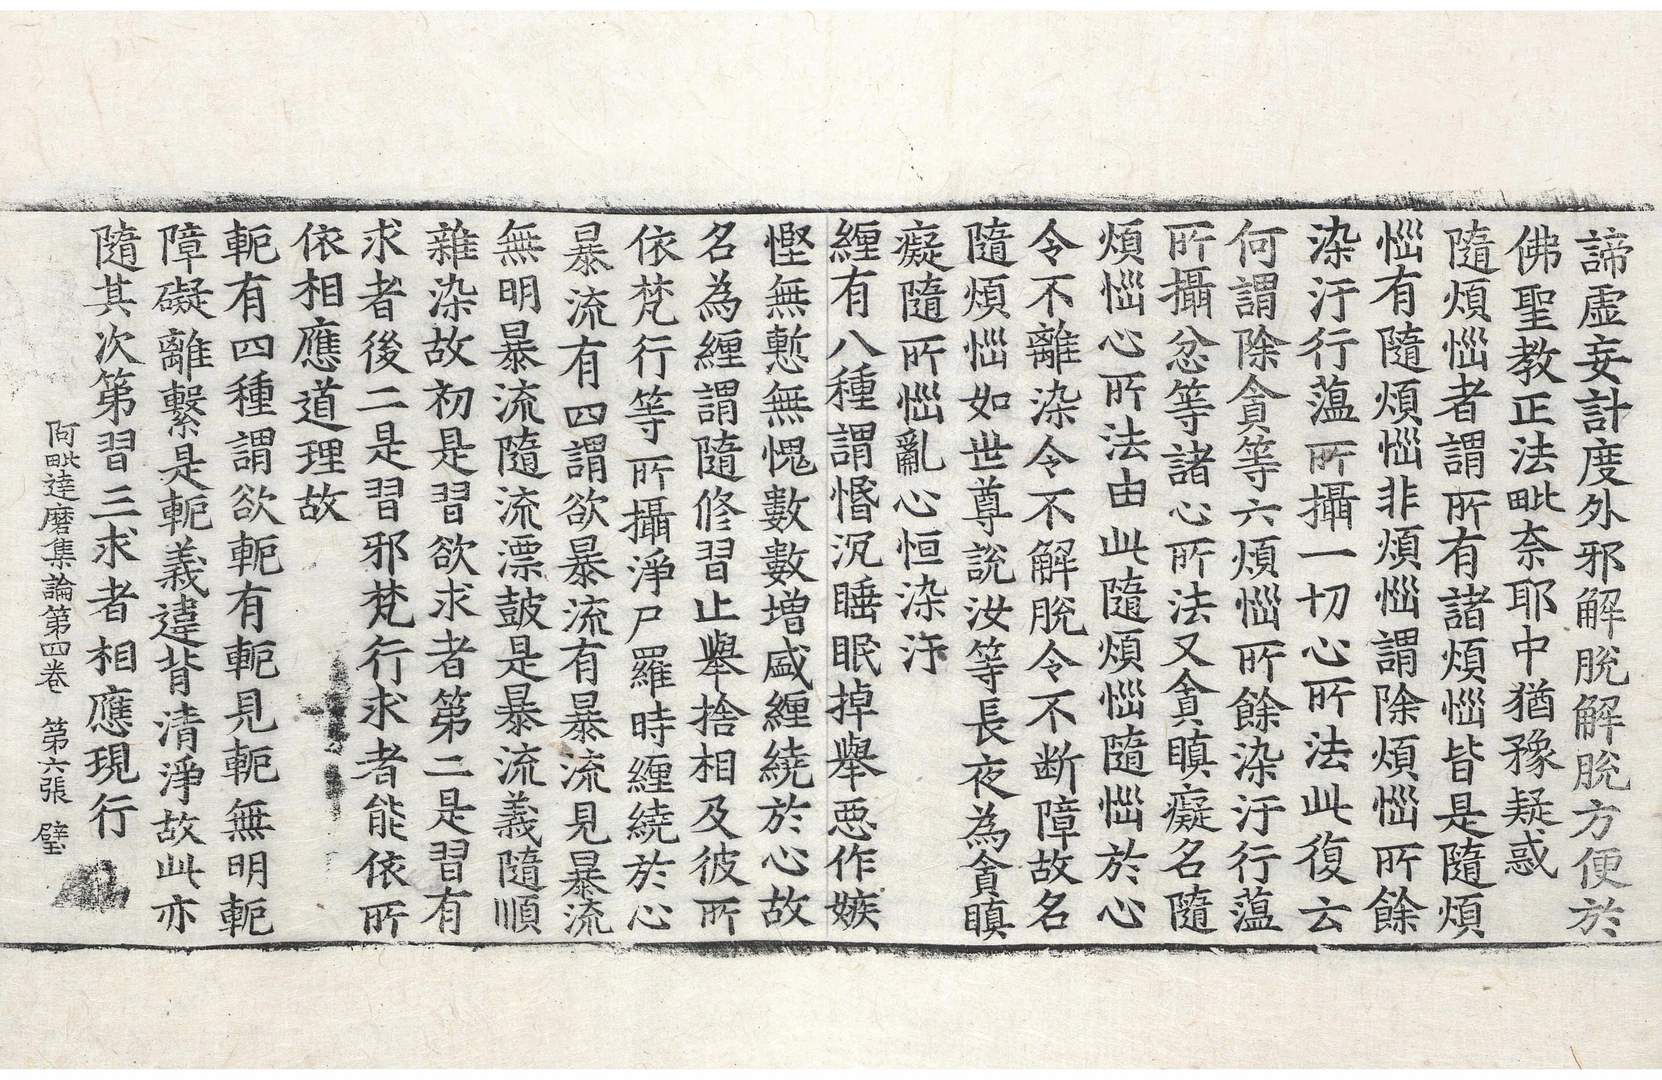 諦虛妄計度外邪解脫解脫方便於
佛聖教正法毗奈耶中猶豫疑惑
隨煩惱者謂所有諸煩惱皆是隨煩
惱有隨煩惱非煩惱謂除煩惱所餘
染汙行蘊所攝一切心所法此復云
何謂除貪等六煩惱所餘染汙行蘊
所攝忿等諸心所法又貪瞋癡名隨
煩惱心所法由此隨煩惱隨惱於心
令不離染令不解脫令不断障故名
隨煩惱如世尊說汝等長夜為貪瞋
癡隨所惱亂心恒染汙
纏有八種謂惛沉睡眠掉舉惡作嫉
慳無慙無愧數數增盛纏繞於心故
名為纏謂隨修習止舉捨相及彼所
依梵行等所攝淨尸羅時纏繞於心
暴流有四謂欲暴流有暴流見暴流
無明暴流隨流漂鼓是暴流義隨順
雜染故初是習欲求者第二是習有
求者後二是習邪梵行求者能依所
依相應道理故
軛有四種謂欲軛有軛見軛無明軛
障礙離繫是軛義違背清淨故此亦
隨其次第習三求者相應現行
阿毗達磨集論第四卷　第六張　璧